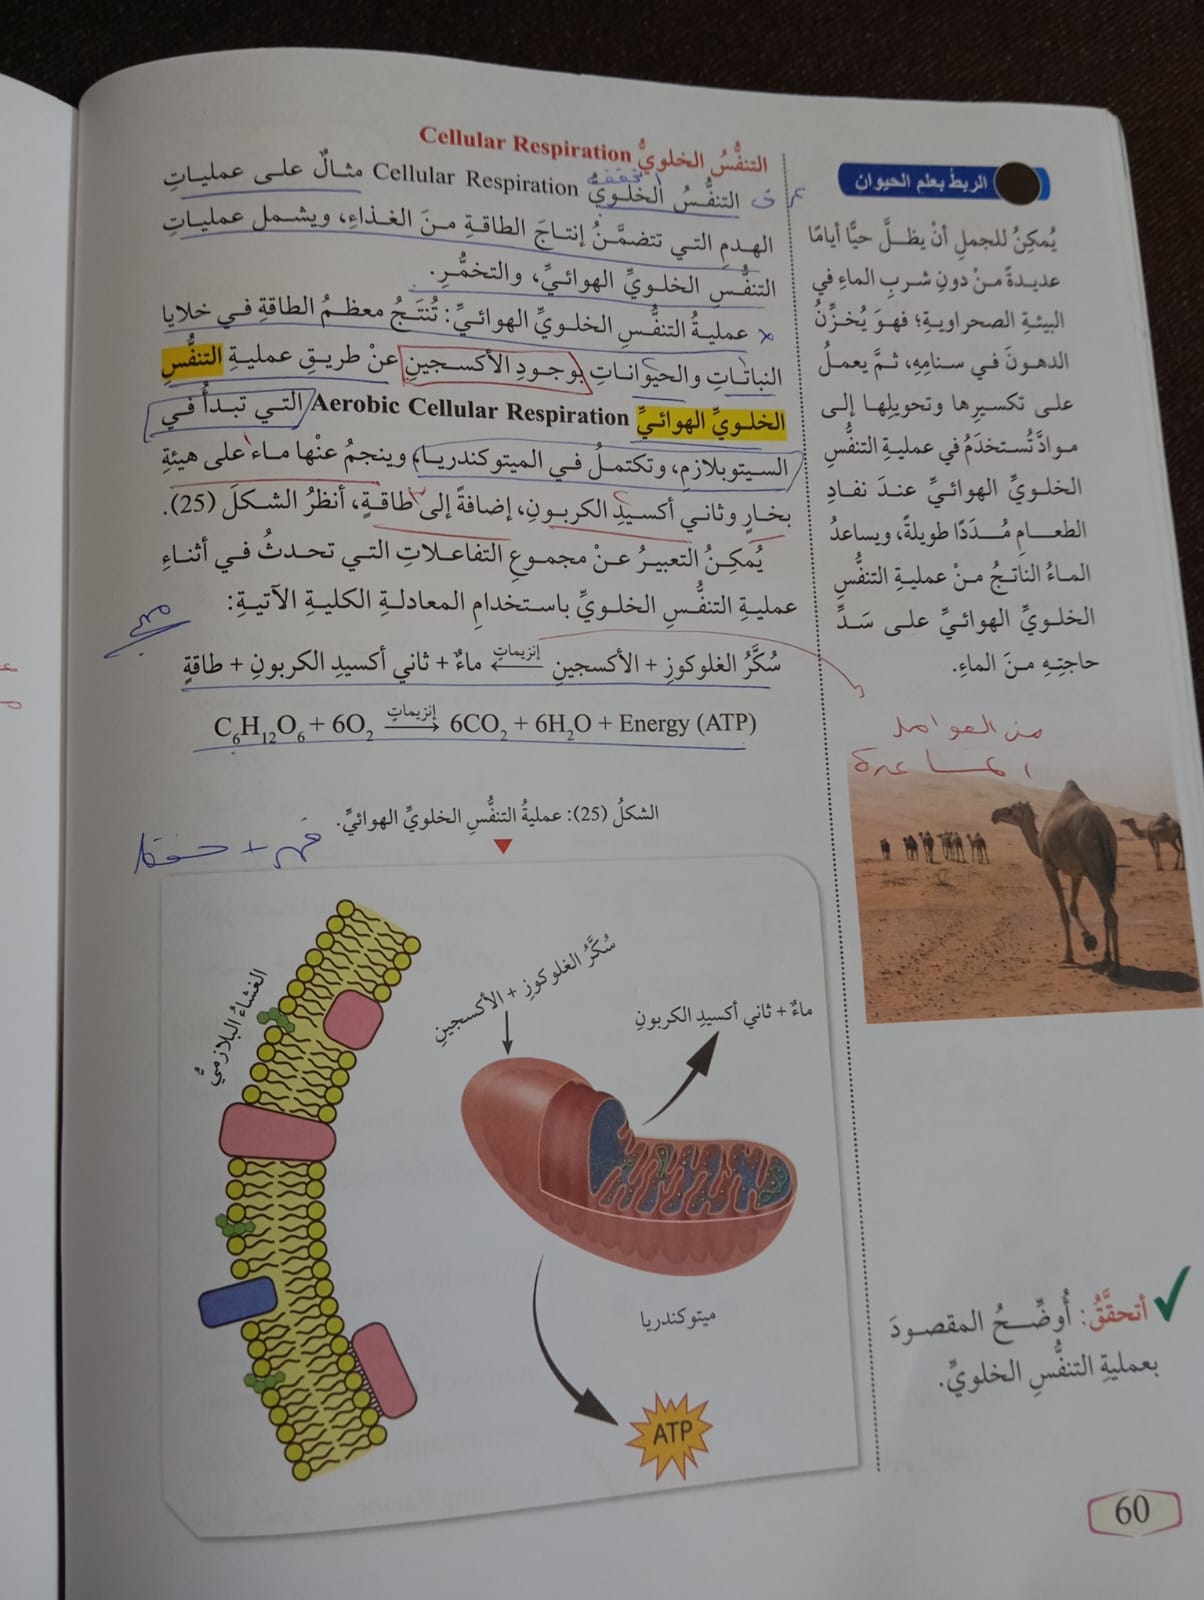 التنفُّسُ الخلويُّ Cellular Respiration
التنفُّسُ الخلويُّ Cellular Respiration مثالٌ على عملياتِ
الهدمِ التي تتضمَّنُ إنتاجَ الطاقةِ منَ الغذاءِ، ويشملُ عملياتِ
التنفُّسِ الخلويِّ الهوائيِّ، والتخمُّرِ.
عمليةُ التنفُّسِ الخلويِّ الهوائيِّ: تُنتَجُ معظمُ الطاقةِ في خلايا
النباتاتِ والحيواناتِ بوجودِ الأكسجينِ عنْ طريقِ عمليةِ التنفُّسِ
الخلويِّ الهوائيِّ Aerobic Cellular Respiration التي تبدأُ في
السيتوبلازمِ، وتكتملُ في الميتوكندريا، وينجمُ عنْها ماء على هيئةِ
بخارٍ وثاني أكسيدِ الكربونِ، إضافةً إلى طاقةٍ، أنظرُ الشكلَ (25).
يُمكِنُ التعبيرُ عنْ مجموعِ التفاعلاتِ التي تحدثُ في أثناءِ
عمليةِ التنفُّسِ الخلويِّ باستخدامِ المعادلةِ الكليةِ الآتيةِ:
مهم
سُكَّرُ الغلوكوزِ + الأكسجينِ إنزيماتٍ ← ماءٌ + ثاني أكسيدِ الكربونِ + طاقةٍ
C6H12O6 + 6O2 إنزيماتٍ → 6CO2 + 6H2O + Energy (ATP)
الشكلُ (25): عمليةُ التنفُّسِ الخلويِّ الهوائيِّ.
فهم + حفظ
الغشاءُ البلازميُّ
سُكَّرُ الغلوكوزِ + الأكسجينِ
ماءٌ + ثاني أكسيدِ الكربونِ
ميتوكندريا
ATP
الربطُ بعلمِ الحيوانِ
يُمكِنُ للجملِ أنْ يظلَّ حيًّا أيامًا
عديدةً منْ دونِ شربِ الماءِ في
البيئةِ الصحراويةِ؛ فهوَ يُخزِّنُ
الدهونَ في سنامِهِ، ثمَّ يعملُ
على تكسيرِها وتحويلِها إلى
موادَّ تُستخدَمُ في عمليةِ التنفُّسِ
الخلويِّ الهوائيِّ عندَ نفادِ
الطعامِ مُدَدًا طويلةً، ويساعدُ
الماءُ الناتجُ منْ عمليةِ التنفُّسِ
الخلويِّ الهوائيِّ على سَدِّ
حاجتِهِ منَ الماءِ.
من العوامل
المساعدة
أتحقَّقُ: أُوضِّحُ المقصودَ
بعمليةِ التنفُّسِ الخلويِّ.
60